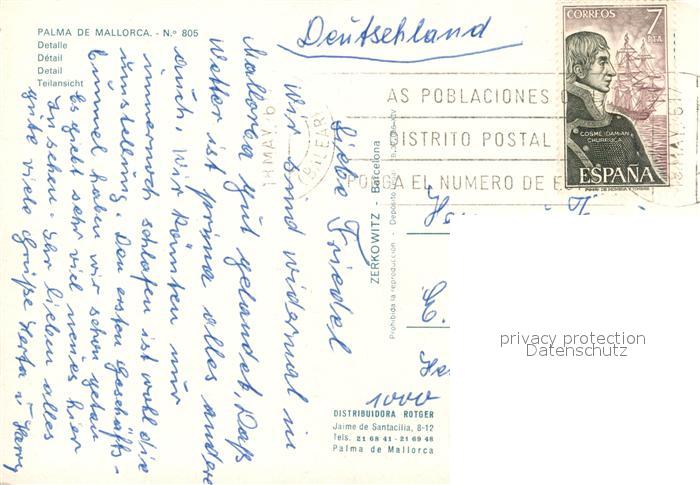 PALMA DE MALLORCA. - N.º 805
Detalle
Détail
Detail
Teilansicht
Deutschland
CORREOS 7 PTA
COSME DAMIAN
CHURRUCA
ESPAÑA
AS POBLACIONES
ISTRITO POSTAL
NGA EL NUMERO DE
18 MAY. 6
(BALEAR
ZERKOWITZ - Barcelona
Prohibida la reproducción - Depósito
Liebe Friedel
Wir sind widermal in
Mallorca gut gelandet, Das
Wetter ist prima alles andere
auch. Wir könnten nur
immernoch schlafen ist wohl die
umstellung. Den ersten Geschäfts-
bummel haben wir schon getan
Es giebt sehr viel neues hier
zu sehen. Ihr lieben alles
gute viele Grüße Herta u Harry
1000
DISTRIBUIDORA ROTGER
Jaime de Santacilia, 8-12
Tels. 21 68 41 - 21 69 48
Palma de Mallorca
privacy protection
Datenschutz